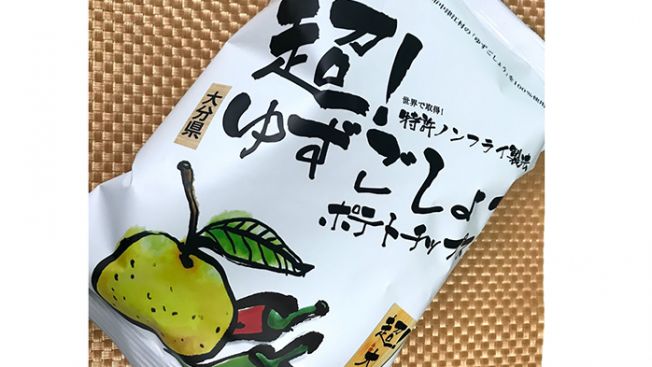 村の「ゆずごしょう」を100%使用
超!
大分県
ゆずごしょう
世界で取得!
特許ノンフライ製法
ポテトチップ
超!大